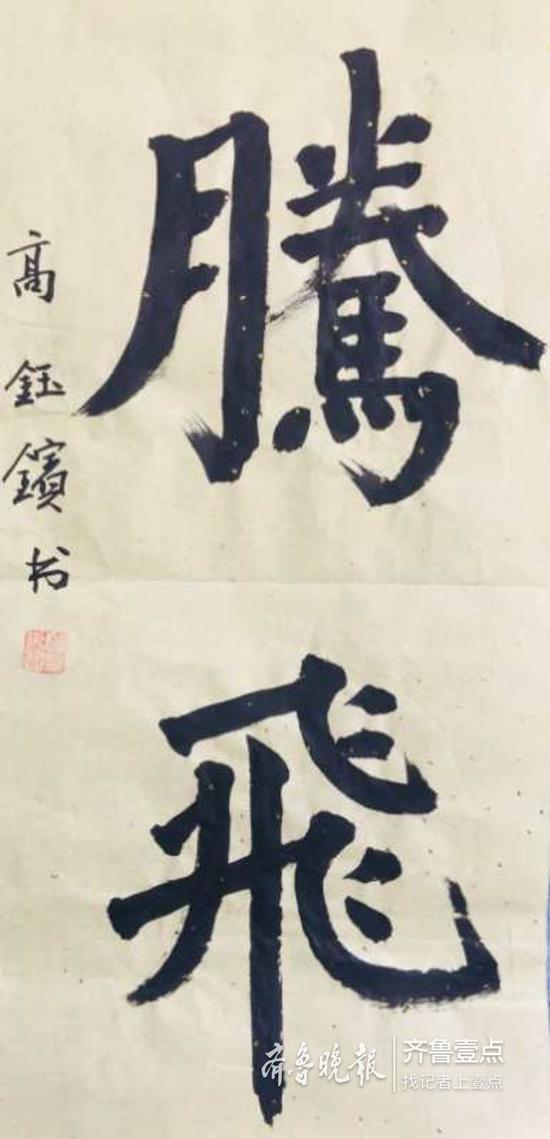 騰飛
高鈺鑌书
齐鲁晚报
齐鲁壹点
找记者上壹点